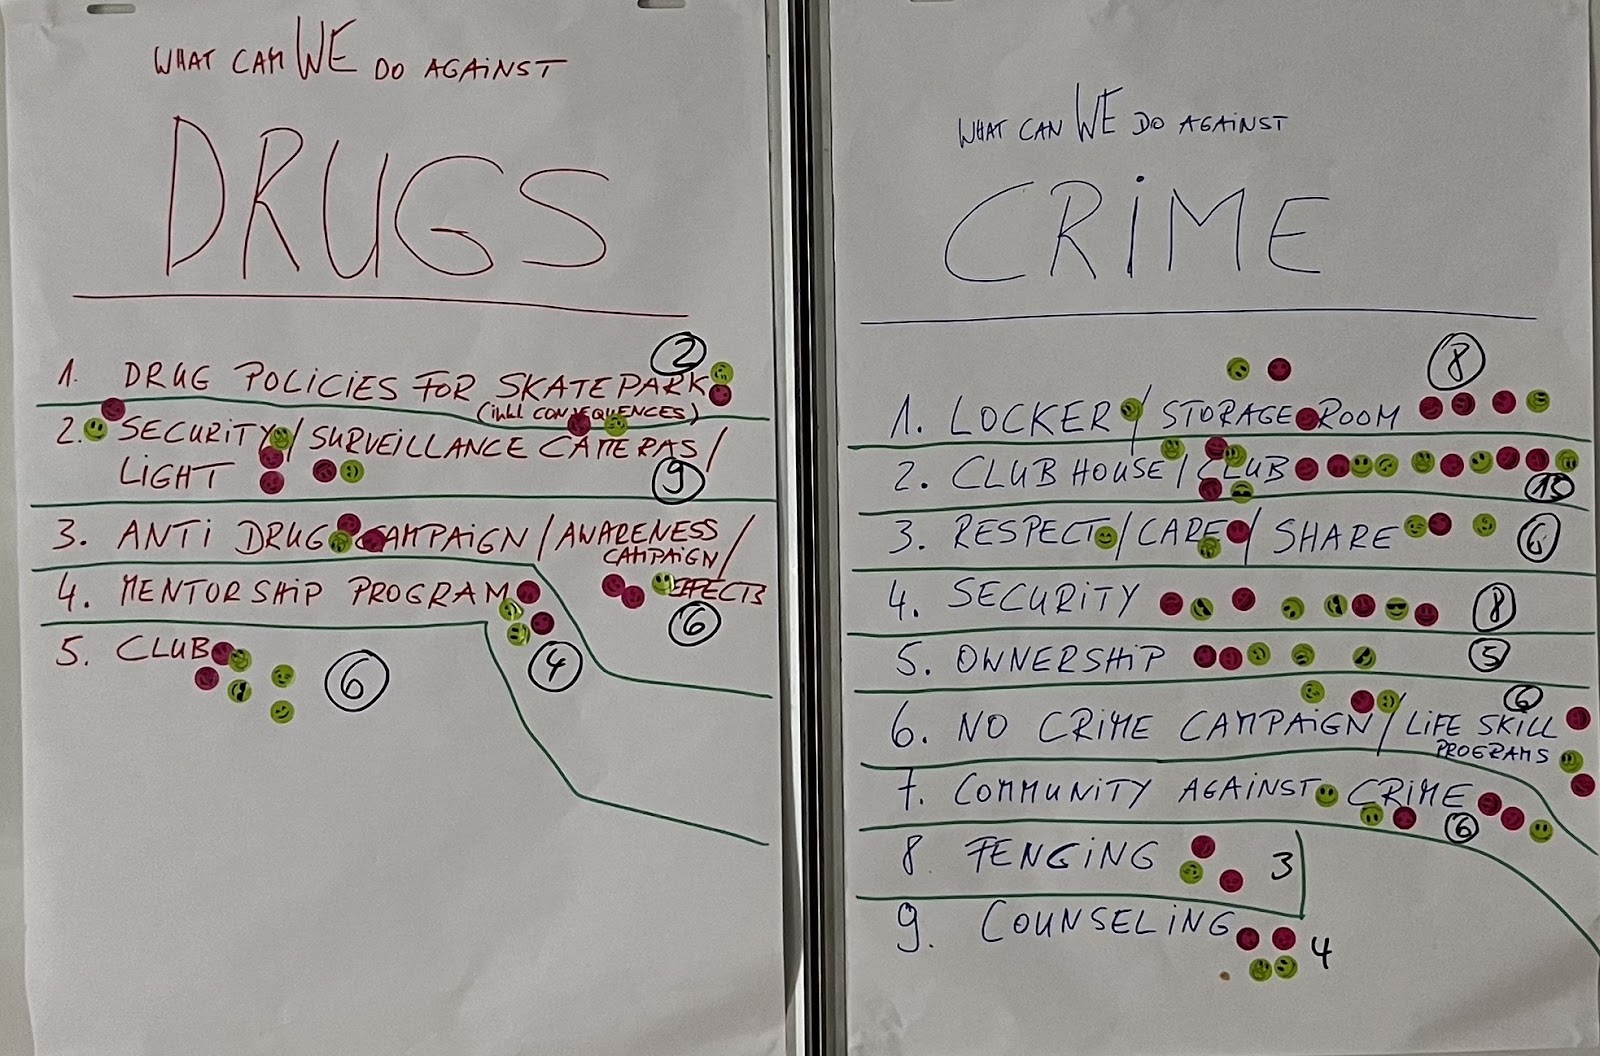 WHAT CAN WE DO AGAINST
DRUGS
1. DRUG POLICIES FOR SKATEPARK
(inkl CONSEQUENCES)
2
2. SECURITY / SURVEILLANCE CAMERAS /
LIGHT
9
3. ANTI DRUG CAMPAIGN / AWARENESS /
CAMPAIGN /
EFFECTS
6
4. MENTORSHIP PROGRAM
4
5. CLUB
6
WHAT CAN WE DO AGAINST
CRIME
8
1. LOCKER / STORAGE ROOM
2. CLUB HOUSE / CLUB
15
3. RESPECT / CARE / SHARE
6
4. SECURITY
8
5. OWNERSHIP
5
6
6. NO CRIME CAMPAIGN / LIFE SKILL
PROGRAMS
7. COMMUNITY AGAINST CRIME
6
8. FENGING
3
9. COUNSELING
4